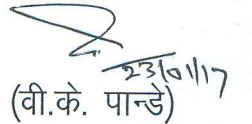 23/01/17
(वी.के. पान्डे)